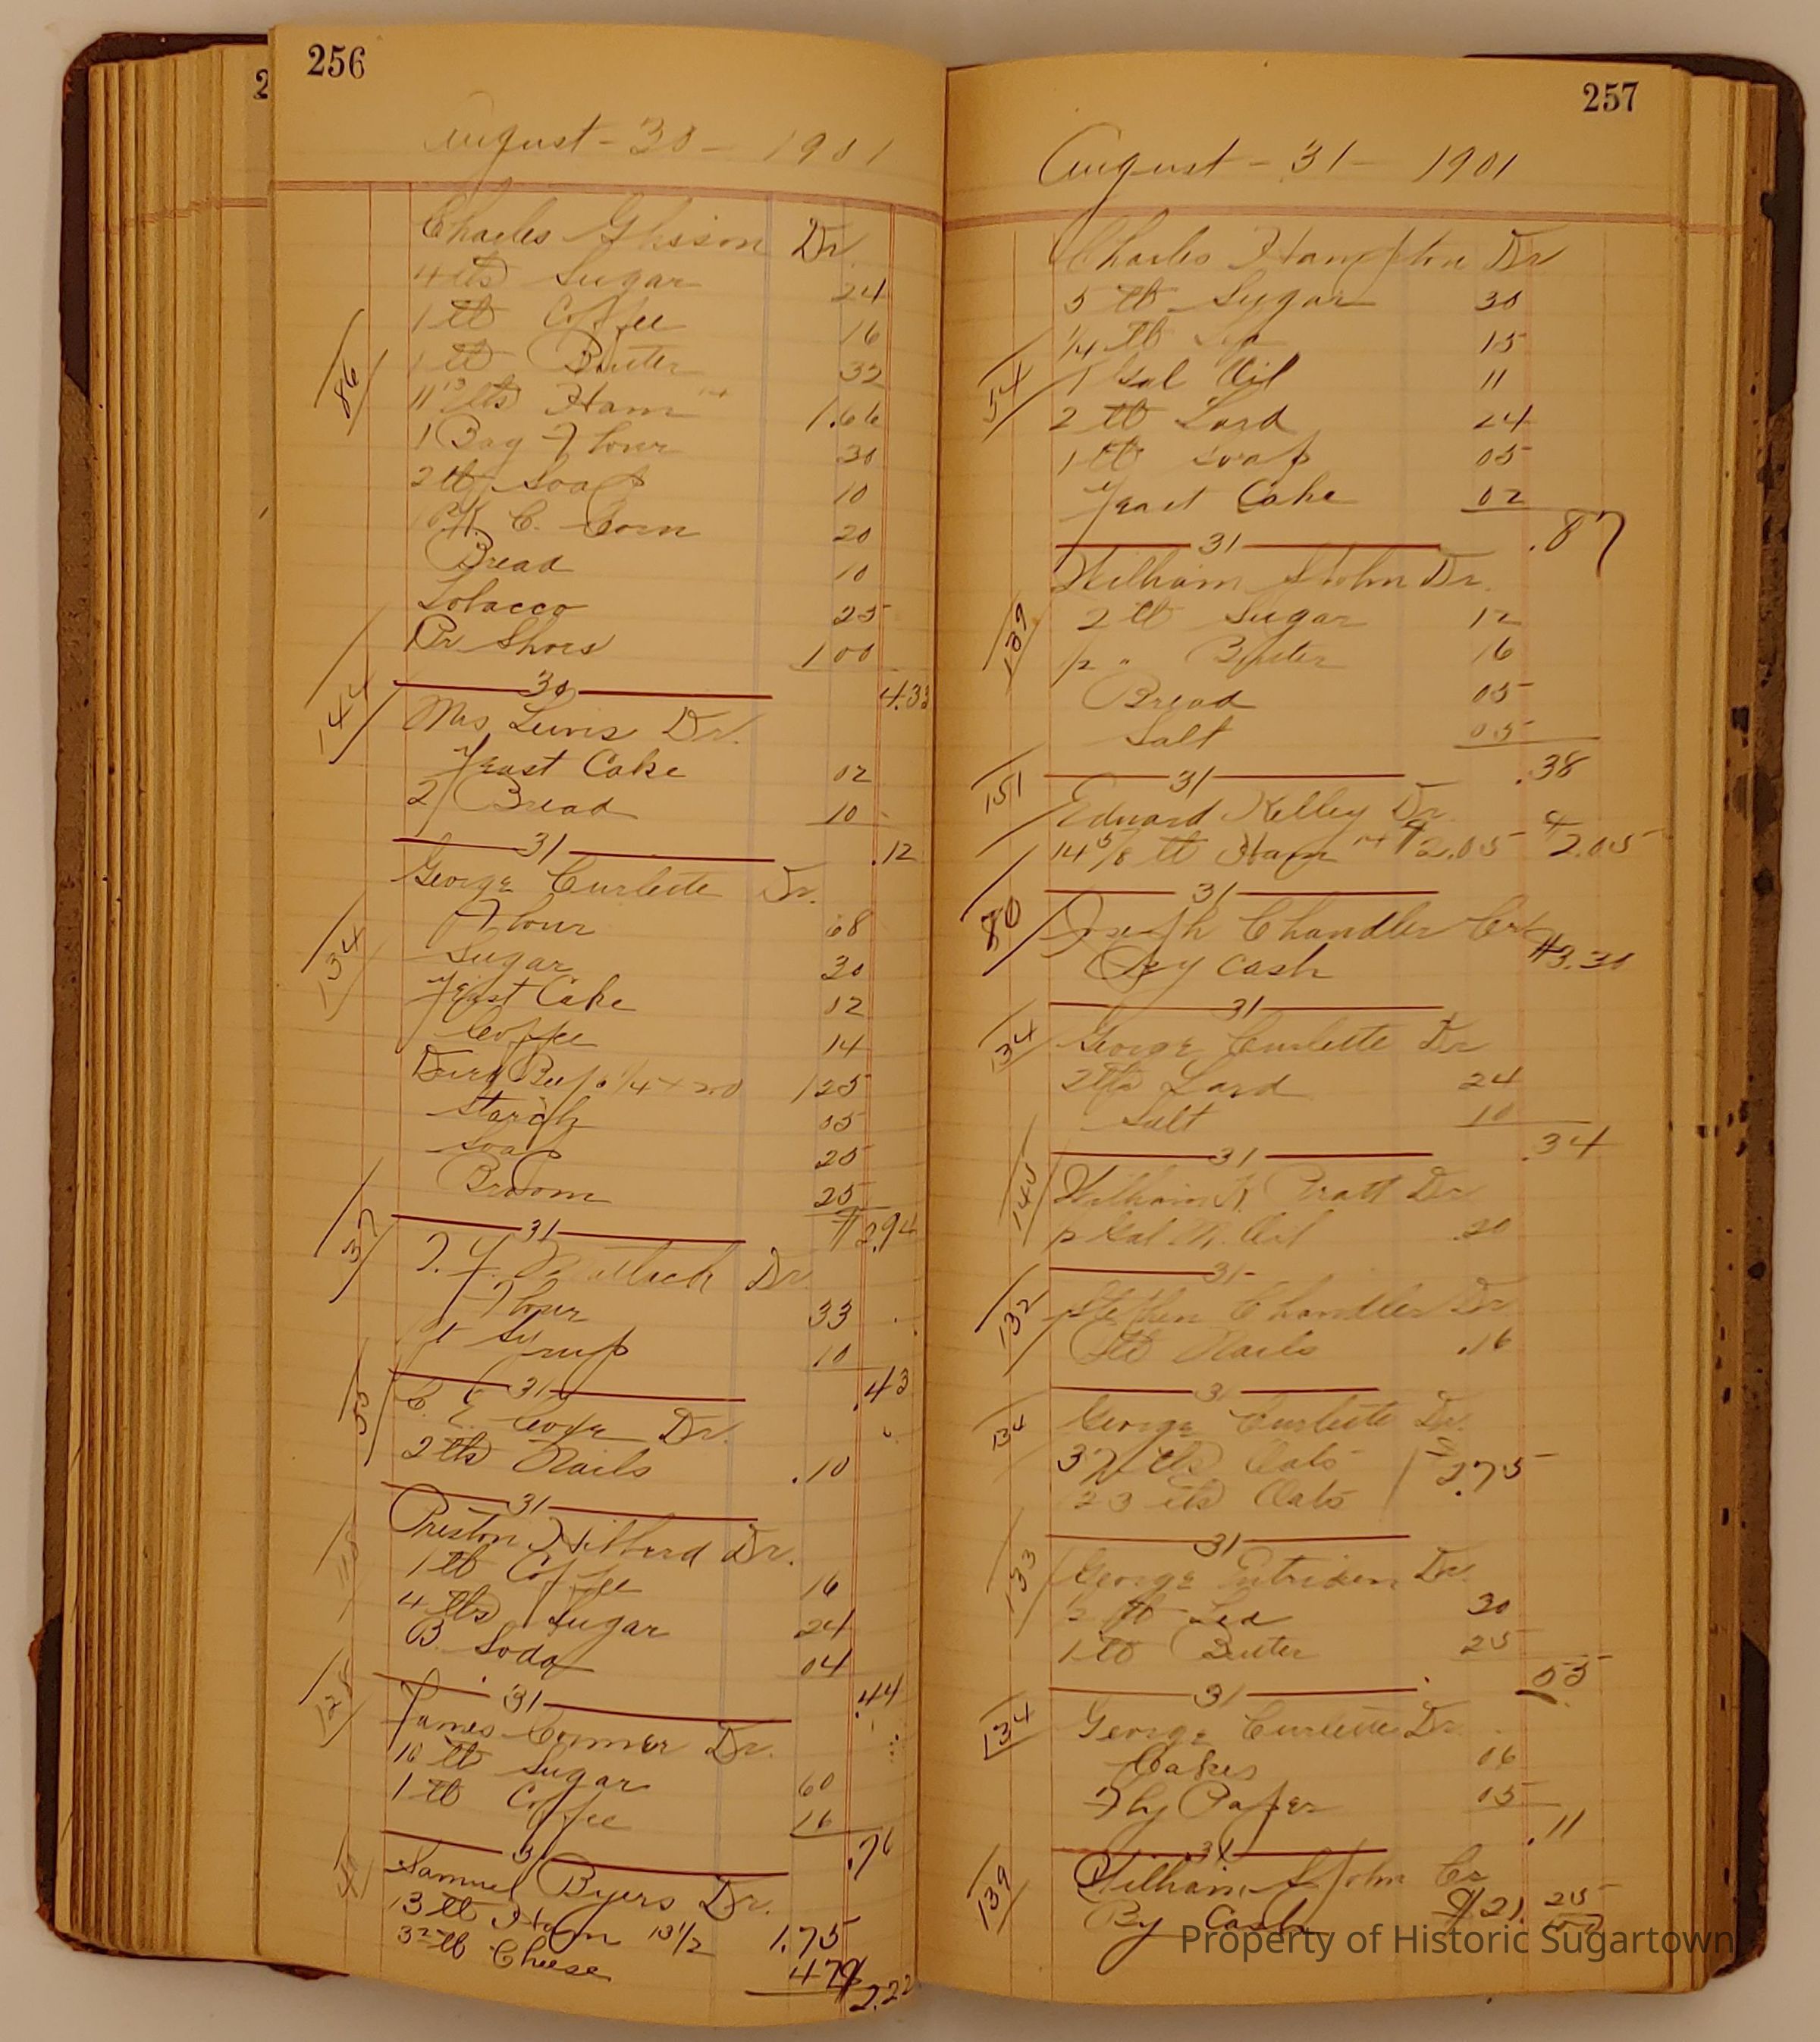 256
August - 30 - 1901
Charles Dr
4 lbs Sugar 24
1 lb Coffee 16
1 lb Butter 32
86
11 13 lbs Ham 14 1.66
1 Bag Flour 30
2 lb Soap 10
C. Corn 20
Bread 10
Tobacco 25
Pr Shoes 1 00
30 4.33
144
Mrs Lewis Dr.
Yeast Cake 02
2 Bread 10
31 .12
George Curlette Dr.
Flour 68
134
Sugar 30
Yeast Cake 02
Coffee 14
Dried Beef 1/4 + 20 1 25
Starch 05
Soap 25
Broom 25
31 $2.94
37
Matlack Dr
Flour 33
Syrup 10
31 .43
53
C. E. Dr.
2 lbs Nails .10
31
Preston Hibberd Dr.
1 lb Coffee 16
4 lbs Sugar 24
B Soda 04
31 .44
128
James Dr.
10 lb Sugar 60
1 lb Coffee 16
31 .76
Samuel Byers Dr.
13 lb Ham 13 1/2 1.75
lb Cheese 47
2.22
2
257
August - 31 - 1901
Charles Hampton Dr
5 lb Sugar 30
1/4 lb Tea 15
54
1 Gal Oil 11
2 lb Lard 24
1 lb Soap 05
Yeast Cake 02
31 .87
William S John Dr.
139
2 lb Sugar 12
1/2 " Butter 16
Bread 05
Salt 05
31 .38
151
Edward Kelley Dr
14 5/8 lb Ham 14 $2.05 $2.05
31
80
Joseph Chandler Cr
By Cash $3.30
31
134
George Curlette Dr
2 lbs Lard 24
Salt 10
31 .34
140
William Pratt Dr
Gal Oil .20
31
132
Stephen Chandler Dr
lb Nails .16
31
134
George Curlette Dr.
lbs Oats
lbs Oats 2.75
31
133
George Entriken Dr.
1/2 lb Tea 30
1 lb Butter 25
31 55
134
George Curlette Dr
Cakes 06
Fly Paper 05
31 .11
139
William S John Cr
By Cash $21.
Property of Historic Sugartown